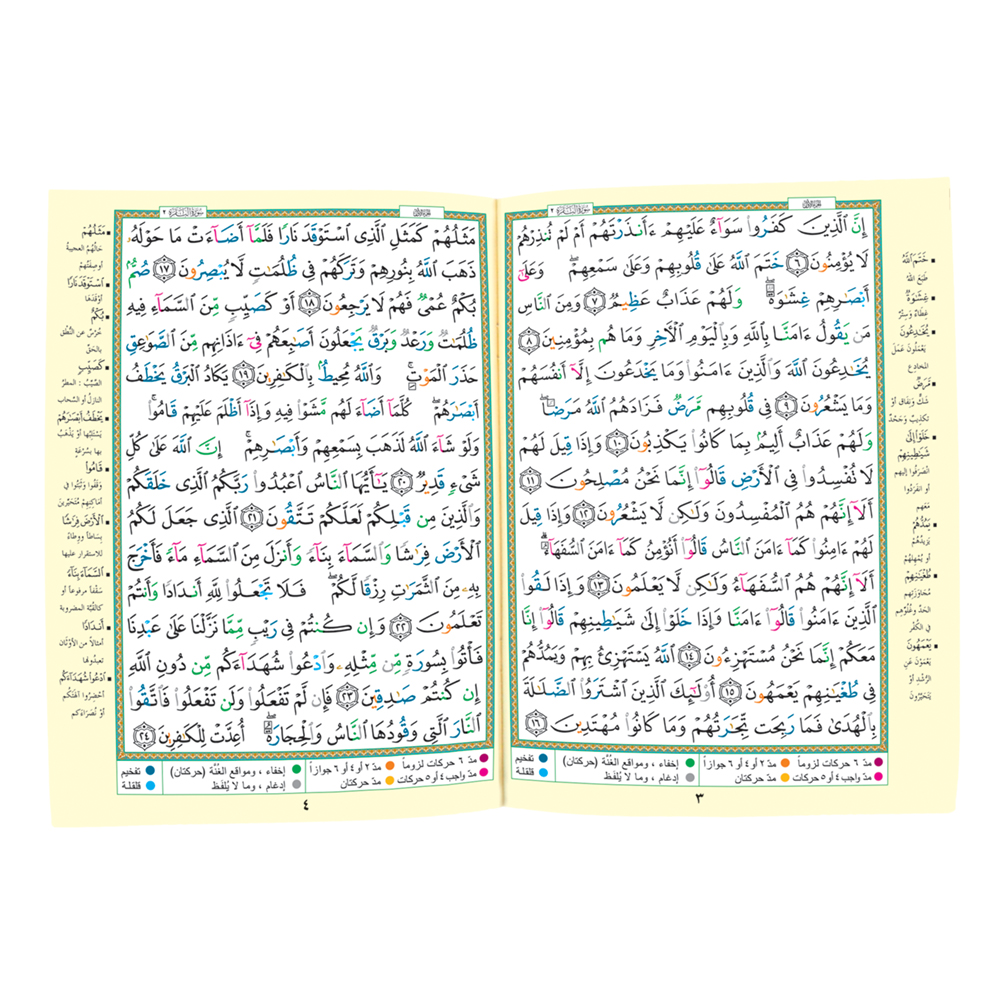 الجزء الأول
سورة البقرة ٢
إِنَّ ٱلَّذِينَ كَفَرُوا۟ سَوَآءٌ عَلَيْهِمْ ءَأَنذَرْتَهُمْ أَمْ لَمْ تُنذِرْهُمْ
لَا يُؤْمِنُونَ ٦ خَتَمَ ٱللَّهُ عَلَىٰ قُلُوبِهِمْ وَعَلَىٰ سَمْعِهِمْ ۖ وَعَلَىٰٓ
أَبْصَٰرِهِمْ غِشَٰوَةٌ ۖ وَلَهُمْ عَذَابٌ عَظِيمٌ ٧ وَمِنَ ٱلنَّاسِ
مَن يَقُولُ ءَامَنَّا بِٱللَّهِ وَبِٱلْيَوْمِ ٱلْءَاخِرِ وَمَا هُم بِمُؤْمِنِينَ ٨
يُخَٰدِعُونَ ٱللَّهَ وَٱلَّذِينَ ءَامَنُوا۟ وَمَا يَخْدَعُونَ إِلَّآ أَنفُسَهُمْ
وَمَا يَشْعُرُونَ ٩ فِى قُلُوبِهِم مَّرَضٌ فَزَادَهُمُ ٱللَّهُ مَرَضًا ۖ
وَلَهُمْ عَذَابٌ أَلِيمٌۢ بِمَا كَانُوا۟ يَكْذِبُونَ ١٠ وَإِذَا قِيلَ لَهُمْ
لَا تُفْسِدُوا۟ فِى ٱلْأَرْضِ قَالُوٓا۟ إِنَّمَا نَحْنُ مُصْلِحُونَ ١١
أَلَآ إِنَّهُمْ هُمُ ٱلْمُفْسِدُونَ وَلَٰكِن لَّا يَشْعُرُونَ ١٢ وَإِذَا قِيلَ
لَهُمْ ءَامِنُوا۟ كَمَآ ءَامَنَ ٱلنَّاسُ قَالُوٓا۟ أَنُؤْمِنُ كَمَآ ءَامَنَ ٱلسُّفَهَآءُ ۗ
أَلَآ إِنَّهُمْ هُمُ ٱلسُّفَهَآءُ وَلَٰكِن لَّا يَعْلَمُونَ ١٣ وَإِذَا لَقُوا۟
ٱلَّذِينَ ءَامَنُوا۟ قَالُوٓا۟ ءَامَنَّا وَإِذَا خَلَوْا۟ إِلَىٰ شَيَٰطِينِهِمْ قَالُوٓا۟ إِنَّا
مَعَكُمْ إِنَّمَا نَحْنُ مُسْتَهْزِءُونَ ١٤ ٱللَّهُ يَسْتَهْزِئُ بِهِمْ وَيَمُدُّهُمْ
فِى طُغْيَٰنِهِمْ يَعْمَهُونَ ١٥ أُو۟لَٰٓئِكَ ٱلَّذِينَ ٱشْتَرَوُا۟ ٱلضَّلَٰلَةَ
بِٱلْهُدَىٰ فَمَا رَبِحَت تِّجَٰرَتُهُمْ وَمَا كَانُوا۟ مُهْتَدِينَ ١٦
خَتَمَ اللَّهُ
طَبَعَ اللَّهُ
غِشَٰوَةٌ
غِطَاءٌ وسِتْرٌ
يُخَٰدِعُونَ
يَعْمَلُونَ عَمَلَ
المخادع
مَرَضٌ
شَكٌّ ونِفَاق أو
تكذيبٌ وجَحْدٌ
خَلَوْا۟ إِلَىٰ
شَيَٰطِينِهِمْ
انْصَرَفُوا إليهم
أو انفردوا
معهم
يَمُدُّهُمْ
يَزِيدُهُمْ
أو يُمْهِلُهُمْ
طُغْيَٰنِهِمْ
مُجَاوَزَتِهِم
الحَدَّ وغُلُوِّهِم
في الكُفْرِ
يَعْمَهُونَ
يَعْمَوْنَ عَنِ
الرُّشْدِ أو
يَتَحَيَّرُونَ
مدّ ٦ حركات لزوماً
مدّ ٢ أو ٤ أو ٦ جوازاً
إخفاء ، ومواقع الغُنَّة (حركتان)
تفخيم
مدّ واجب ٤ أو ٥ حركات
مدّ حركتان
إدغام ، وما لا يُلفَظ
قلقلة
٣
الجزء الأول
سورة البقرة ٢
مَثَلُهُمْ كَمَثَلِ ٱلَّذِى ٱسْتَوْقَدَ نَارًا فَلَمَّآ أَضَآءَتْ مَا حَوْلَهُۥ
ذَهَبَ ٱللَّهُ بِنُورِهِمْ وَتَرَكَهُمْ فِى ظُلُمَٰتٍ لَّا يُبْصِرُونَ ١٧ صُمٌّۢ
بُكْمٌ عُمْىٌ فَهُمْ لَا يَرْجِعُونَ ١٨ أَوْ كَصَيِّبٍ مِّنَ ٱلسَّمَآءِ فِيهِ
ظُلُمَٰتٌ وَرَعْدٌ وَبَرْقٌ يَجْعَلُونَ أَصَٰبِعَهُمْ فِىٓ ءَاذَانِهِم مِّنَ ٱلصَّوَٰعِقِ
حَذَرَ ٱلْمَوْتِ ۚ وَٱللَّهُ مُحِيطٌۢ بِٱلْكَٰفِرِينَ ١٩ يَكَادُ ٱلْبَرْقُ يَخْطَفُ
أَبْصَٰرَهُمْ ۖ كُلَّمَآ أَضَآءَ لَهُم مَّشَوْا۟ فِيهِ وَإِذَآ أَظْلَمَ عَلَيْهِمْ قَامُوا۟ ۚ
وَلَوْ شَآءَ ٱللَّهُ لَذَهَبَ بِسَمْعِهِمْ وَأَبْصَٰرِهِمْ ۚ إِنَّ ٱللَّهَ عَلَىٰ كُلِّ
شَىْءٍ قَدِيرٌ ٢٠ يَٰٓأَيُّهَا ٱلنَّاسُ ٱعْبُدُوا۟ رَبَّكُمُ ٱلَّذِى خَلَقَكُمْ
وَٱلَّذِينَ مِن قَبْلِكُمْ لَعَلَّكُمْ تَتَّقُونَ ٢١ ٱلَّذِى جَعَلَ لَكُمُ
ٱلْأَرْضَ فِرَٰشًا وَٱلسَّمَآءَ بِنَآءً وَأَنزَلَ مِنَ ٱلسَّمَآءِ مَآءً فَأَخْرَجَ
بِهِۦ مِنَ ٱلثَّمَرَٰتِ رِزْقًا لَّكُمْ ۖ فَلَا تَجْعَلُوا۟ لِلَّهِ أَندَادًا وَأَنتُمْ
تَعْلَمُونَ ٢٢ وَإِن كُنتُمْ فِى رَيْبٍ مِّمَّا نَزَّلْنَا عَلَىٰ عَبْدِنَا
فَأْتُوا۟ بِسُورَةٍ مِّن مِّثْلِهِۦ وَٱدْعُوا۟ شُهَدَآءَكُم مِّن دُونِ ٱللَّهِ
إِن كُنتُمْ صَٰدِقِينَ ٢٣ فَإِن لَّمْ تَفْعَلُوا۟ وَلَن تَفْعَلُوا۟ فَٱتَّقُوا۟
ٱلنَّارَ ٱلَّتِى وَقُودُهَا ٱلنَّاسُ وَٱلْحِجَارَةُ ۖ أُعِدَّتْ لِلْكَٰفِرِينَ ٢٤
مَثَلُهُمْ
حَالُهُم العجيبةُ
أو صِفَتُهُمْ
ٱسْتَوْقَدَ نَارًا
أوْقَدَهَا
بُكْمٌ
خُرْسٌ عن النُّطْقِ
بالحَقِّ
كَصَيِّبٍ
الصَّيِّبُ : المطرُ
النازلُ أو السَّحاب
يَخْطَفُ أَبْصَٰرَهُمْ
يَسْتَلِبُهَا أوْ يَذْهَبُ
بها بسُرْعَةٍ
قَامُوا۟
وَقَفُوا وثَبَتُوا في
أماكنِهِمْ مُتَحَيِّرِينَ
ٱلْأَرْضَ فِرَٰشًا
بِسَاطاً ووِطَاءً
للاستقرار عليها
ٱلسَّمَآءَ بِنَآءً
سَقْفاً مرفوعاً أو
كالقُبَّة المضروبة
أَندَادًا
أمثالاً من الأوْثَانِ
تعبدُونها
ٱدْعُوا۟ شُهَدَآءَكُم
أحْضِرُوا آلهتَكُم
أوْ نُصَرَاءَكم
مدّ ٦ حركات لزوماً
مدّ ٢ أو ٤ أو ٦ جوازاً
إخفاء ، ومواقع الغُنَّة (حركتان)
تفخيم
مدّ واجب ٤ أو ٥ حركات
مدّ حركتان
إدغام ، وما لا يُلفَظ
قلقلة
٤